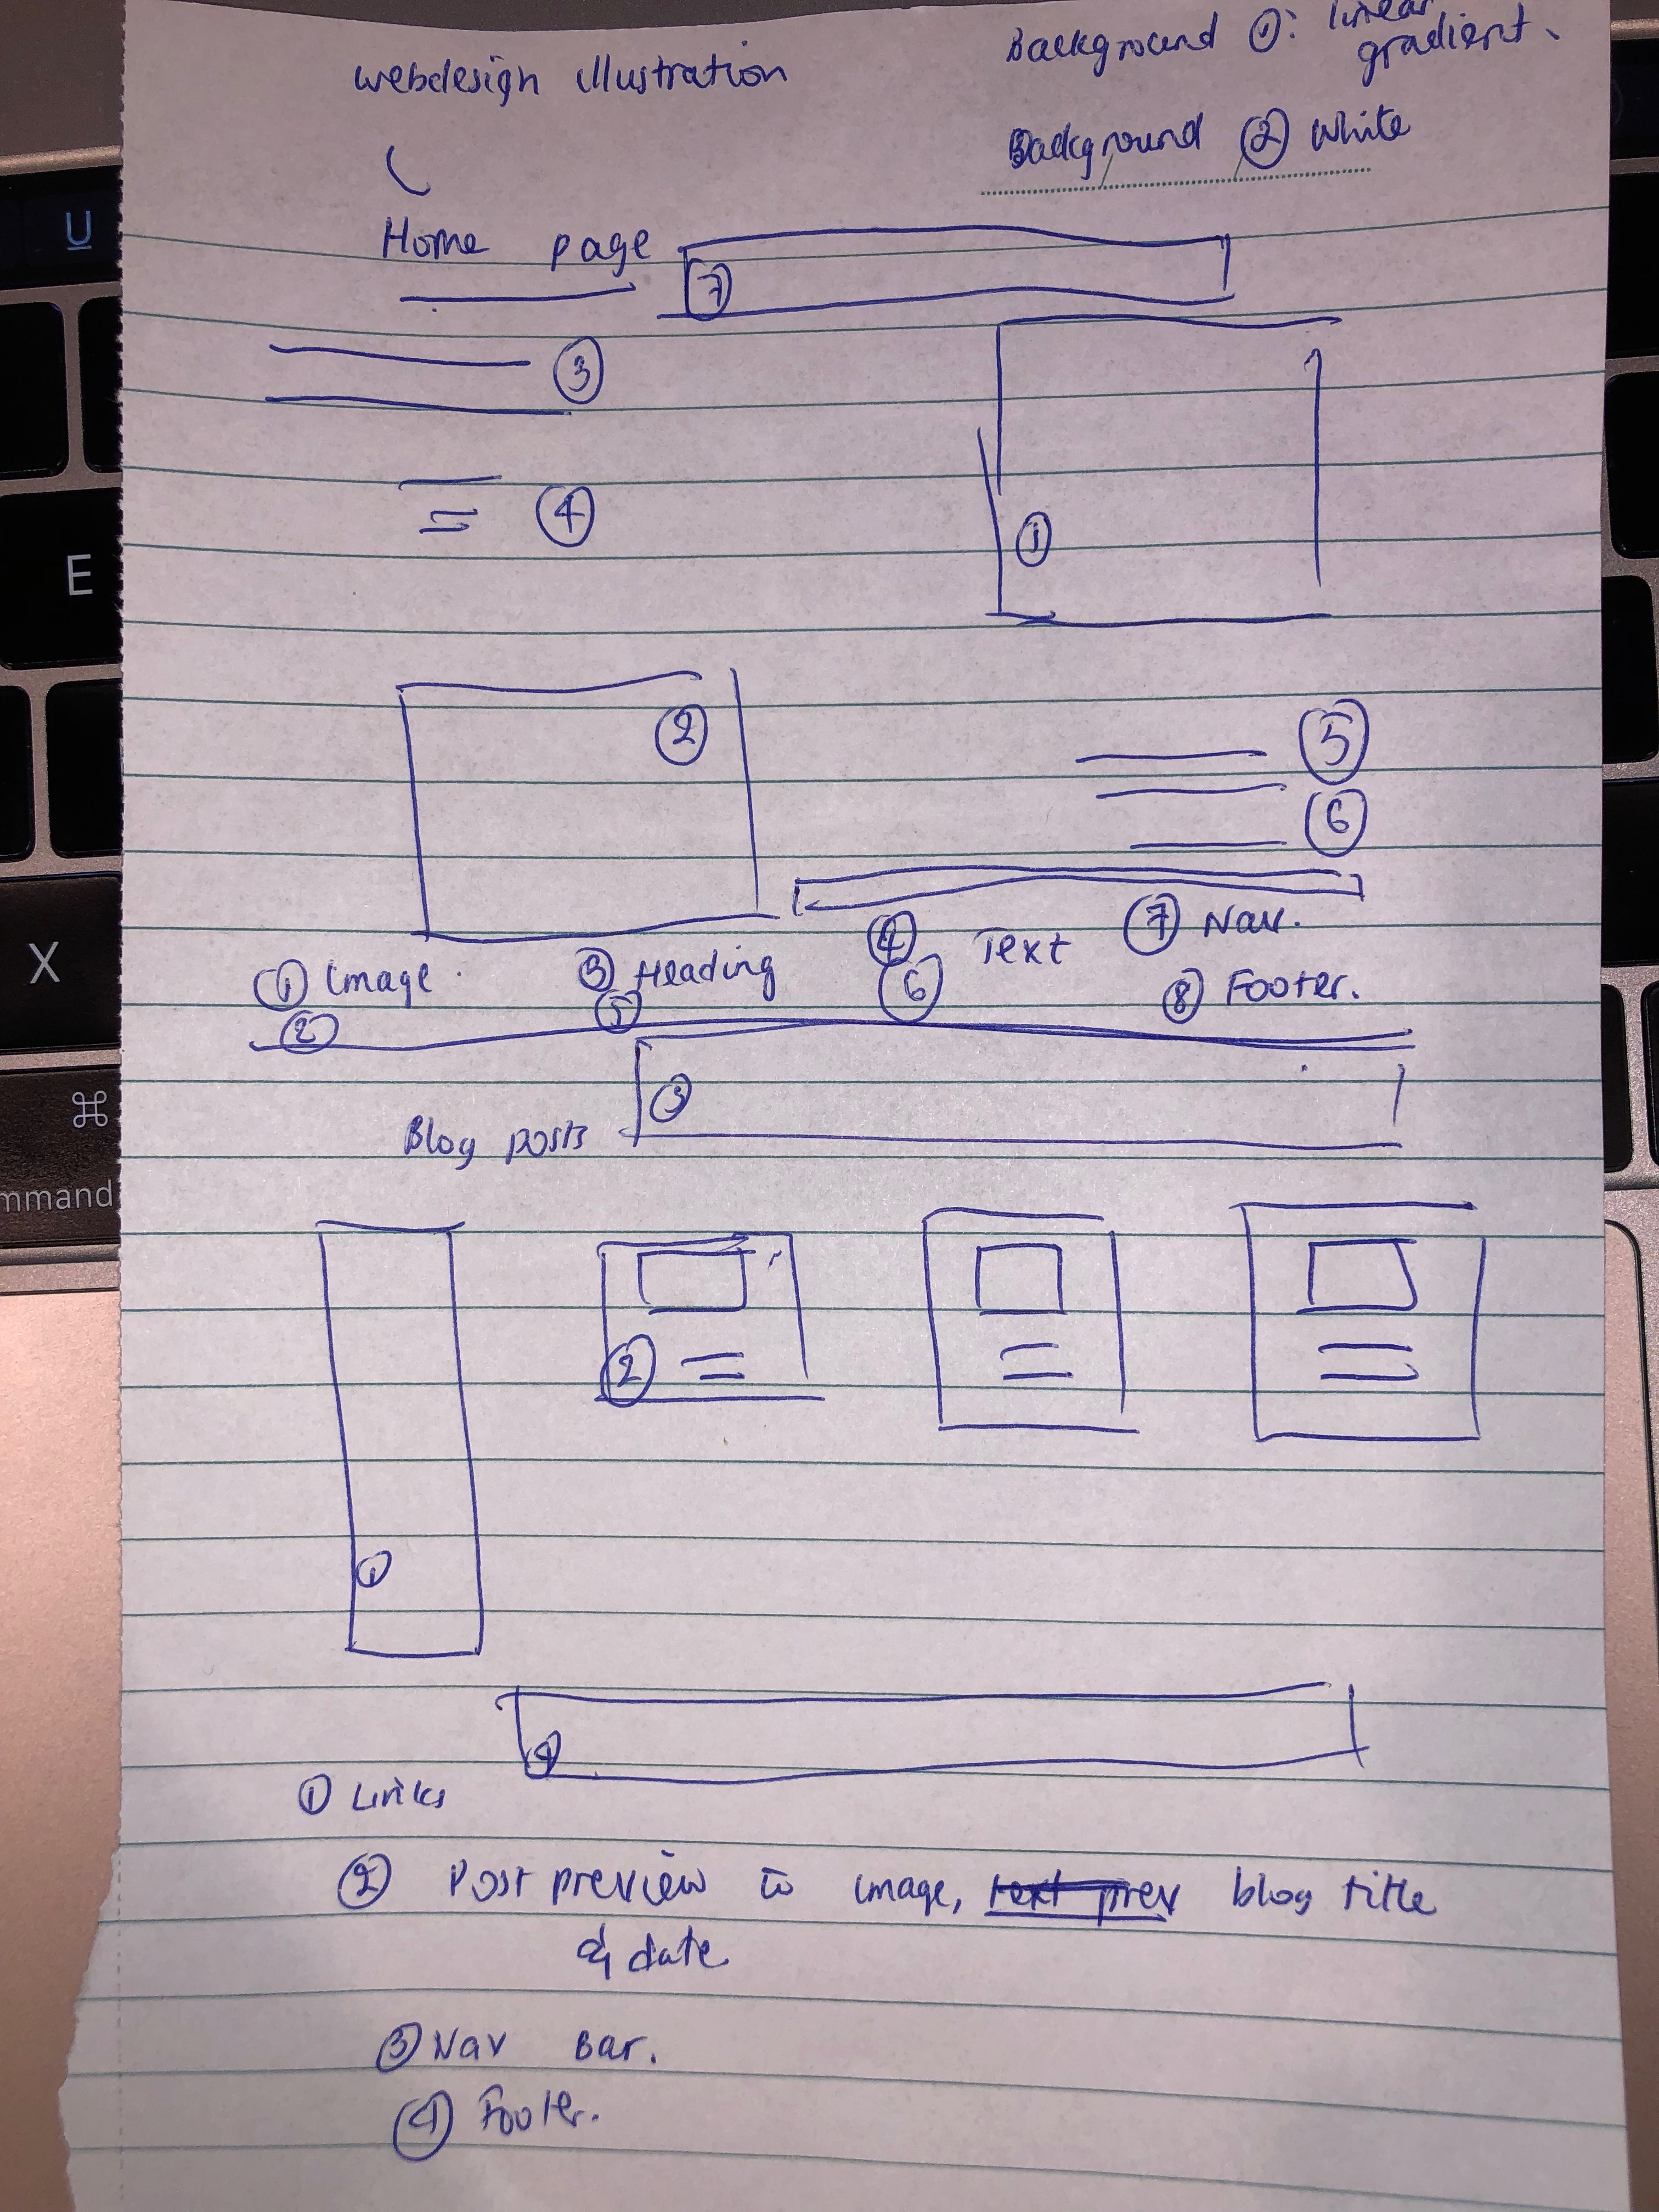 webdesign illustration
Background ①: linear
gradient.
Background ② White
Home page
⑦
③
④
①
②
⑤
⑥
① Image.
②
③ Heading
⑤
④ Text
⑥
⑦ Nav.
⑧ Footer.
③
Blog posts
②
①
④
① Links
② Post preview image, text prev blog title
& date
③ Nav Bar.
④ Footer.
U
E
X
⌘
mmand